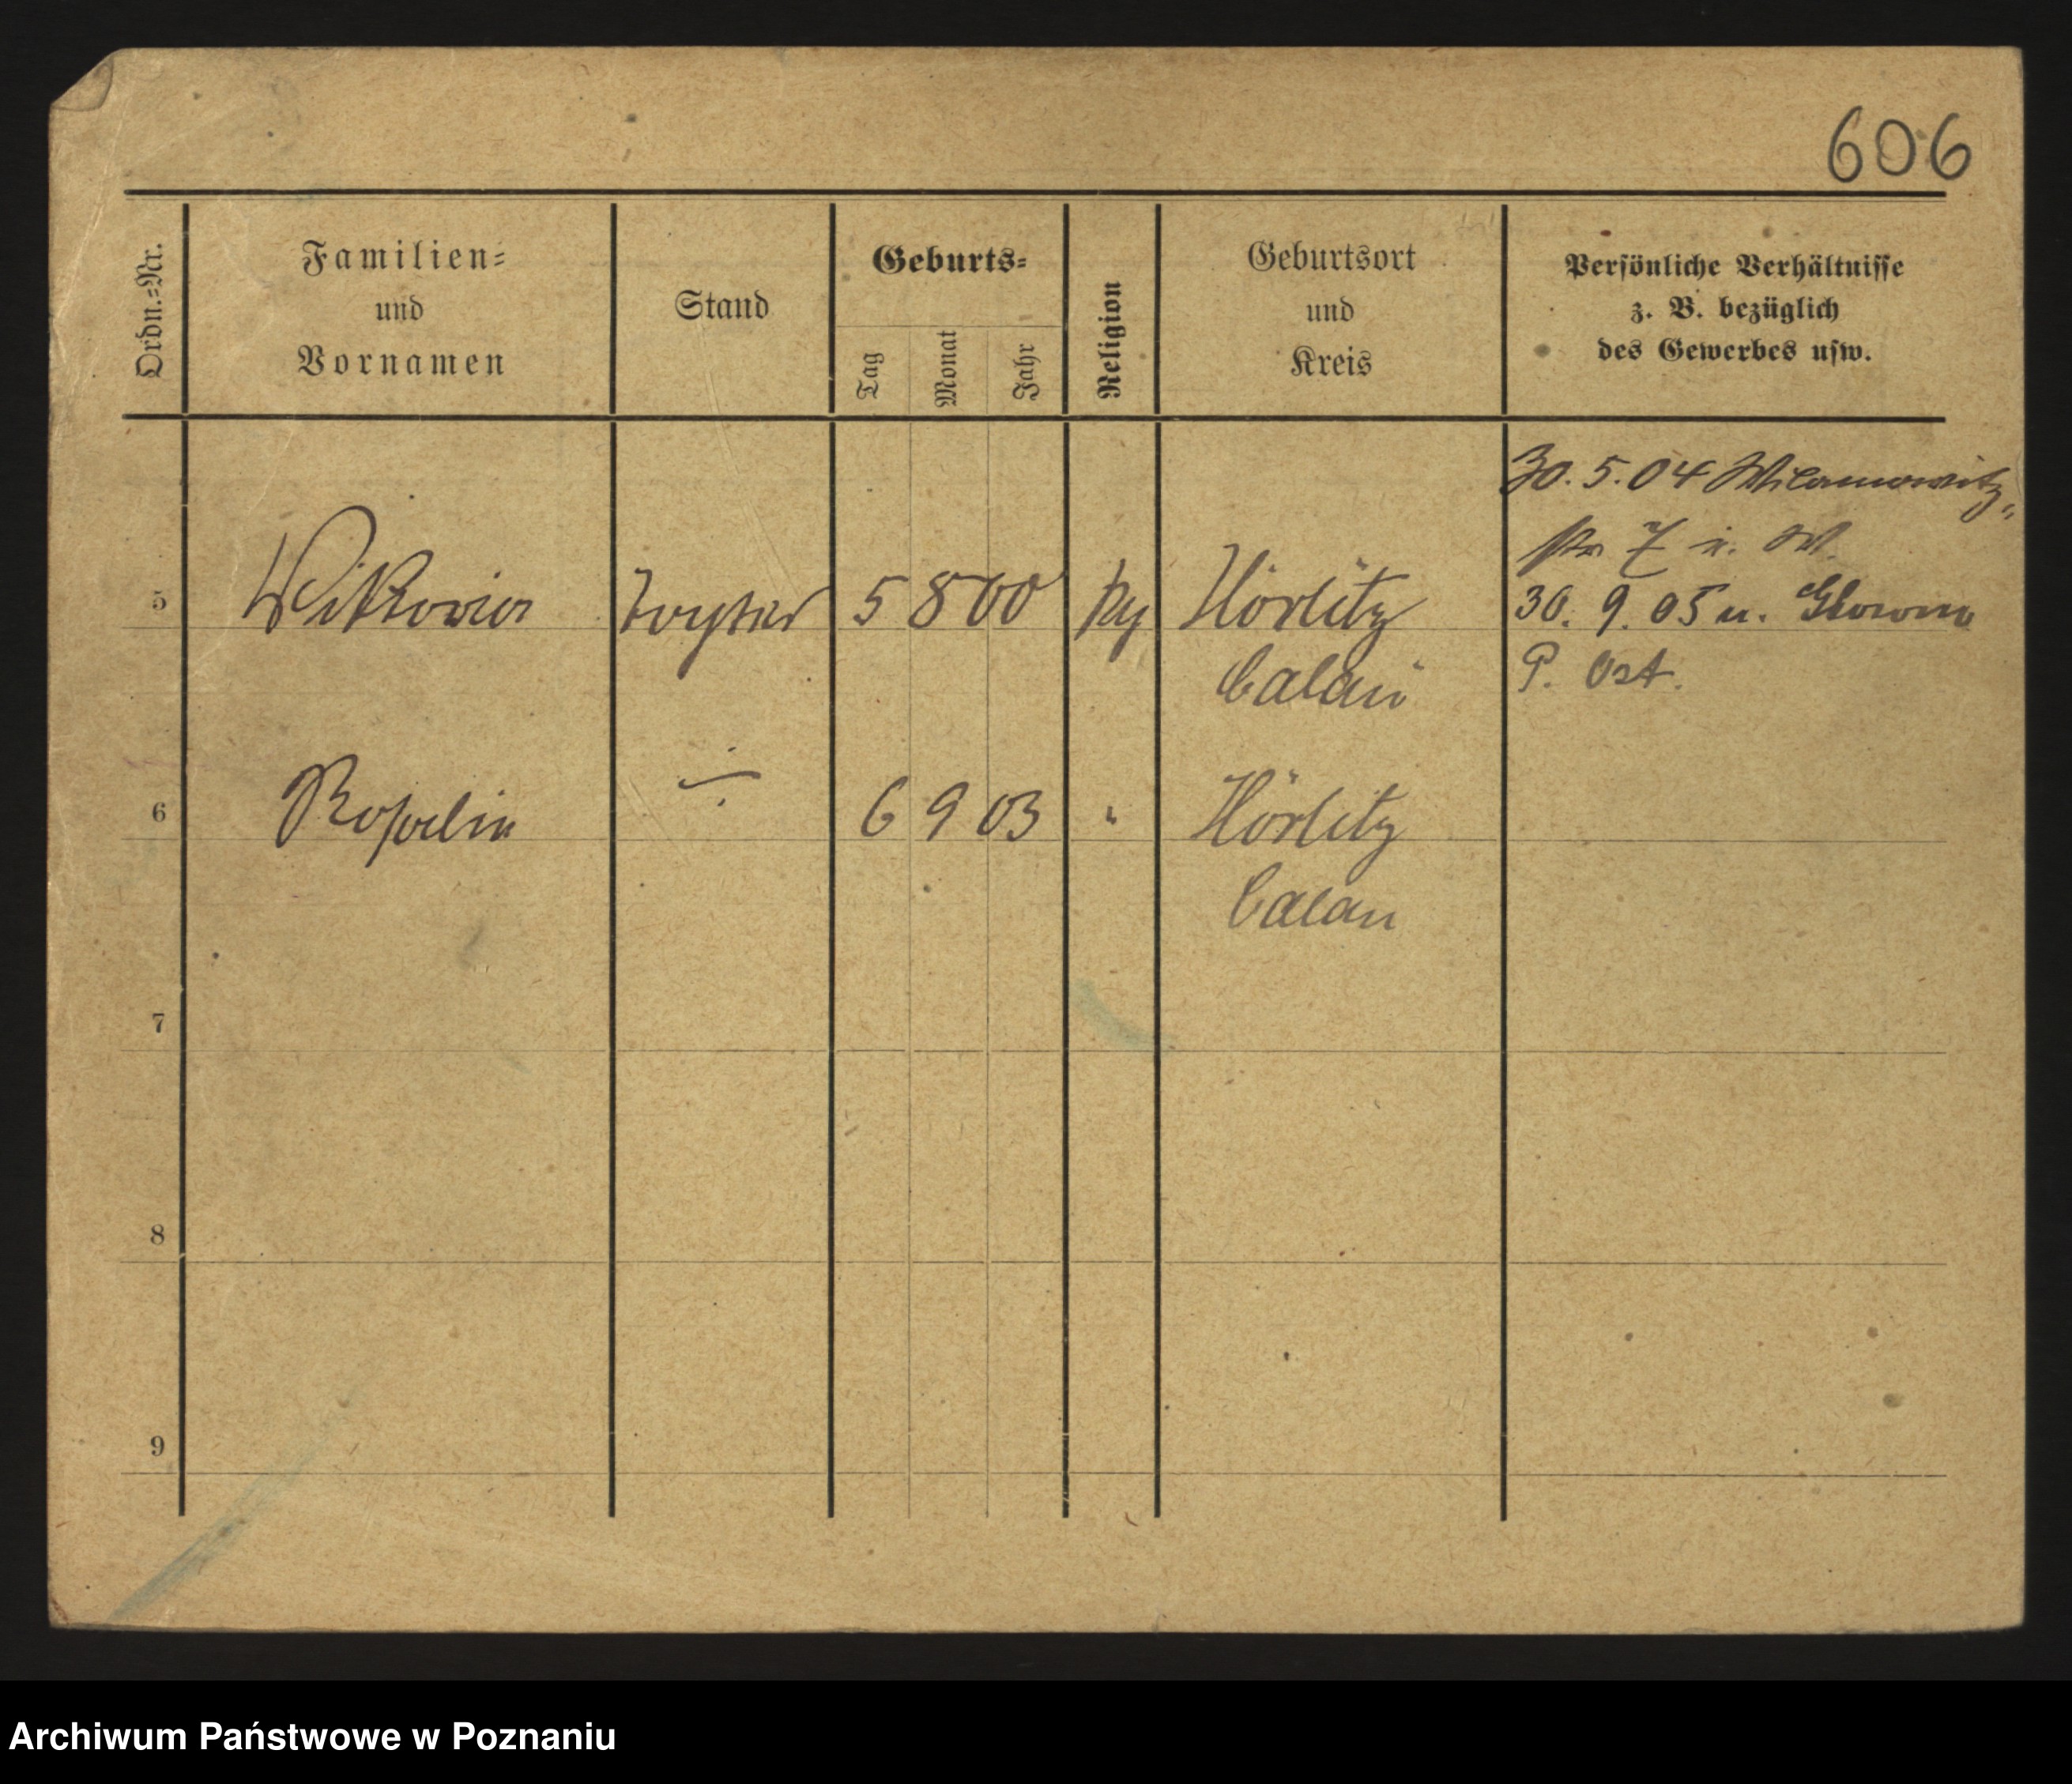 606
Ordn.=Nr.
Familien=
und
Vornamen
Stand
Geburts=
Tag
Monat
Jahr
Religion
Geburtsort
und
Kreis
Persönliche Verhältnisse
z. B. bezüglich
des Gewerbes usw.
30. 5. 04 Wilamowitz-
str 7 u. W.
5 Tochter 5 8 00 Hörlitz 30. 9. 05 u. Glowno
Calau P. Ost.
6 Rosalie 6 9 03 " Hörlitz
Calau
7
8
9
Archiwum Państwowe w Poznaniu